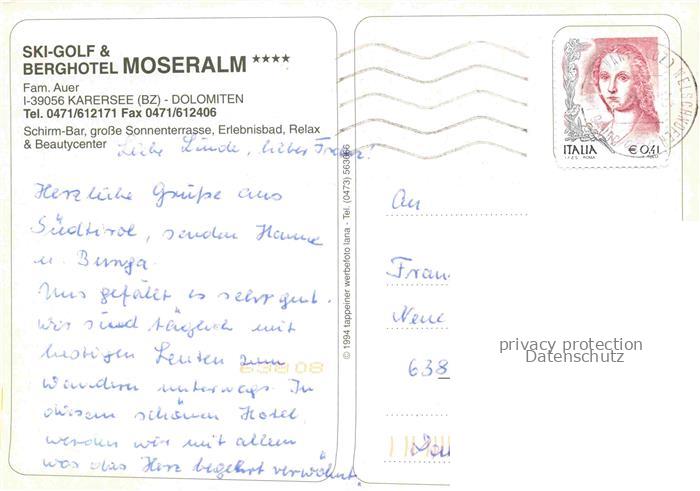 SKI-GOLF &
BERGHOTEL MOSERALM ★★★★
Fam. Auer
I-39056 KARERSEE (BZ) - DOLOMITEN
Tel. 0471/612171 Fax 0471/612406
Schirm-Bar, große Sonnenterrasse, Erlebnisbad, Relax
& Beautycenter
Liebe Linde, lieber
Herzliche Grüße aus
Südtirol, senden Hanne
u. Bunga.
Uns gefällt es sehr gut.
wir sind täglich mit
lustigen Leuten zum
wandern unterwegs. In
diesem schönen Hotel
werden wir mit allem
was das Herz begehrt verwöhnt.
63808
© 1994 tappeiner werbefoto lana - Tel. (0473) 563666
ITALIA € 0,41
I.P.Z.S. ROMA
An
Neue
638
privacy protection
Datenschutz